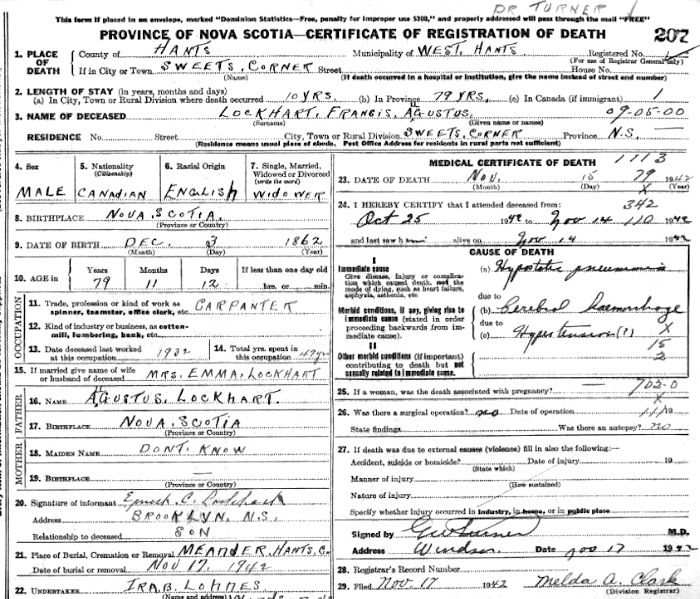 DR TURNER
This form if placed in an envelope, marked "Dominion Statistics—Free, penalty for improper use $300," and properly addressed will pass through the mail "FREE"
PROVINCE OF NOVA SCOTIA—CERTIFICATE OF REGISTRATION OF DEATH 207
1. PLACE OF DEATH
County of HANTS Municipality of WEST. HANTS Registered No.
(For use of Registrar General only)
If in City or Town SWEETS, CORNER Street House No.
(Name) (If death occurred in a hospital or institution, give the name instead of street and number)
2. LENGTH OF STAY (in years, months and days)
(a) In City, Town or Rural Division where death occurred 10 YRS. (b) In Province 79 YRS. (c) In Canada (if immigrant) 1
3. NAME OF DECEASED LOCKHART, FRANCIS, AGUSTUS, 09-05-00
(Surname) (Given name or names)
RESIDENCE No. Street City, Town or Rural Division SWEETS, CORNER Province N.S.
(Residence means usual place of abode. Post Office Address for residents in rural parts not sufficient)
4. Sex MALE
5. Nationality (Citizenship) CANADIAN
6. Racial Origin ENGLISH
7. Single, Married, Widowed or Divorced (write the word) WIDOWER
8. BIRTHPLACE NOVA. SCOTIA.
(Province or Country)
9. DATE OF BIRTH DEC. 3 1862
(Month) (Day) (Year)
10. AGE in Years Months Days If less than one day old
79 11 12 hrs. or min.
OCCUPATION
11. Trade, profession or kind of work as spinner, teamster, office clerk, etc. CARPANTER
12. Kind of industry or business, as cotton-mill, lumbering, bank, etc.
13. Date deceased last worked at this occupation 1932
14. Total yrs. spent in this occupation
15. If married give name of wife or husband of deceased MRS. EMMA. LOCKHART
FATHER
16. NAME AGUSTUS. LOCKHART.
17. BIRTHPLACE NOVA. SCOTIA
(Province or Country)
MOTHER
18. MAIDEN NAME DONT. KNOW
19. BIRTHPLACE —
(Province or Country)
20. Signature of informant C. Lockhart
Address BROOKLYN. N.S.
Relationship to deceased SON
21. Place of Burial, Cremation or Removal MEANDER, HANTS, C.
Date of burial or removal NOV 17. 1942
22. UNDERTAKER IRA.B. LOHNES
(Name and address)
MEDICAL CERTIFICATE OF DEATH 1113
23. DATE OF DEATH Nov. 15 79 1942
(Month) (Day) X (Year)
24. I HEREBY CERTIFY that I attended deceased from: 342
Oct 25 1942 to Nov 14 110 1942
and last saw him alive on Nov 14 1942
CAUSE OF DEATH
I
Immediate cause
Give disease, injury or complication which caused death, not the mode of dying, such as heart failure, asphyxia, asthenia, etc
(a) Hypostatic pneumonia
due to
Morbid conditions, if any, giving rise to immediate cause (stated in order proceeding backwards from immediate cause).
(b) Cerebral haemorrhage
due to X
(c) Hypertension (?)
15
2
II
Other morbid conditions (if important) contributing to death but not causally related to immediate cause.
25. If a woman, was the death associated with pregnancy? 702-0
X
26. Was there a surgical operation? no Date of operation 19
State findings Was there an autopsy? no
27. If death was due to external causes (violence) fill in also the following:—
Accident, suicide or homicide? Date of injury 19
(State which)
Manner of injury
(How sustained)
Nature of injury
Specify whether injury occurred in industry, in home, or in public place
Signed by M.D.
Address Windsor Date Nov 17 1942
28. Registrar's Record Number
29. Filed Nov. 17 1942 Melda A. Clark
(Division Registrar)